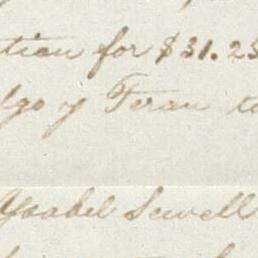 tion for $31.25
lgo y Teran to
Ysabel Sewell